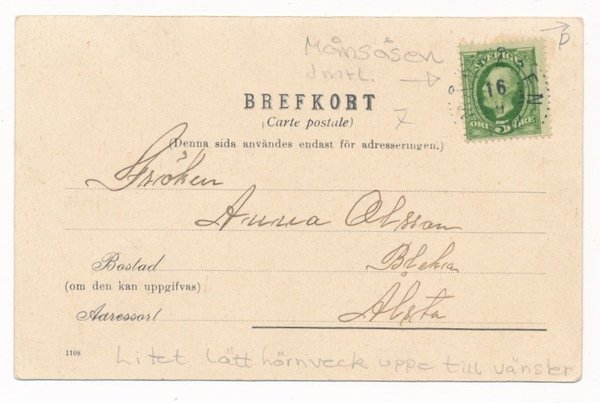 Månsåsen
Jmtl.
D
SVERIGE
16
ÅSEN
BREFKORT
(Carte postale)
(Denna sida användes endast för adresseringen.)
Fröken
Anna Olsson
Bostad
(om den kan uppgifvas)
Adressort
1108
Litet lätt hörnveck uppe till vänster